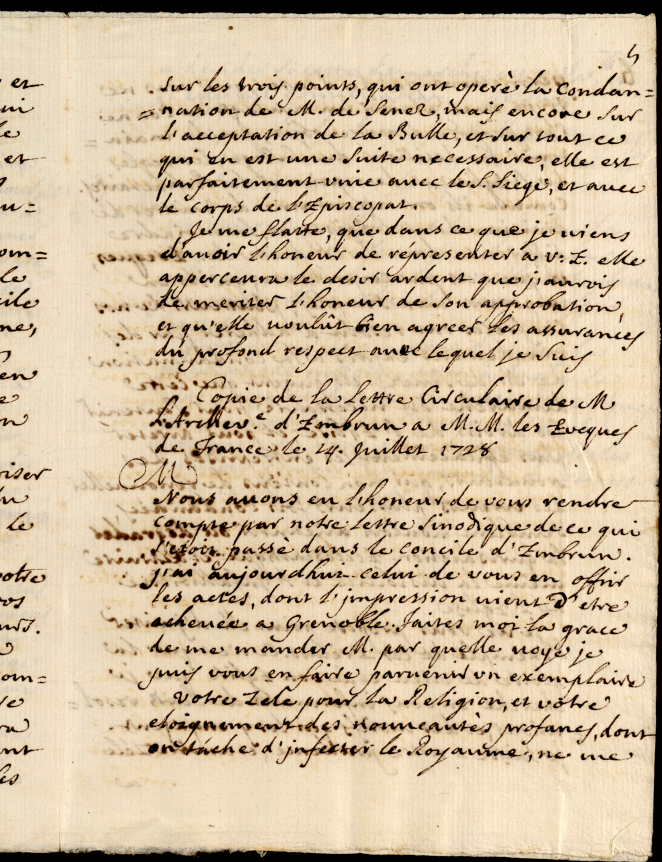 5
et
ui
le
et
u=
om=
le
cile
ne,
en
e
n
riser
le
votre
vos
urs.
om=
re
ra
nt
les
sur les trois points, qui ont operè la Condan=
=nation de M. de Senez, mais encore sur
l'acceptation de la Bulle, et sur tout ce
qui en est une suite necessaire, elle est
parfaitement unie avec le S. Siege, et avec
le corps de l'Episcopat.
Je me flatte, que dans ce que je viens
d'avoir l'honneur de répresenter a V: E. elle
appercevra le desir ardent que j'aurois
de meriter l'honneur de son approbation,
et qu'elle voulût bien agreer les assurances
du profond respect avec lequel je suis
Copie de la Lettre Circulaire de M
L'Archev.e d'Embrun a M.M. les Eveques
de France le 14. Juillet 1728
M
Nous avons eu l'honneur de vous rendre
compte par notre Lettre Sinodique de ce qui
s'etoit passè dans le concile d'Embrun.
J'ai aujourdhui celui de vous en offrir
les actes, dont l'impression vient d'etre
achevée a Grenoble. Faites moi la grace
de me mander M. par quelle voye je
puis vous en faire parvenir un exemplaire
Votre Zele pour la Religion, et vôtre
eloignement des nouveautès profanes, dont
on tâche d'infecter le Royaume, ne me